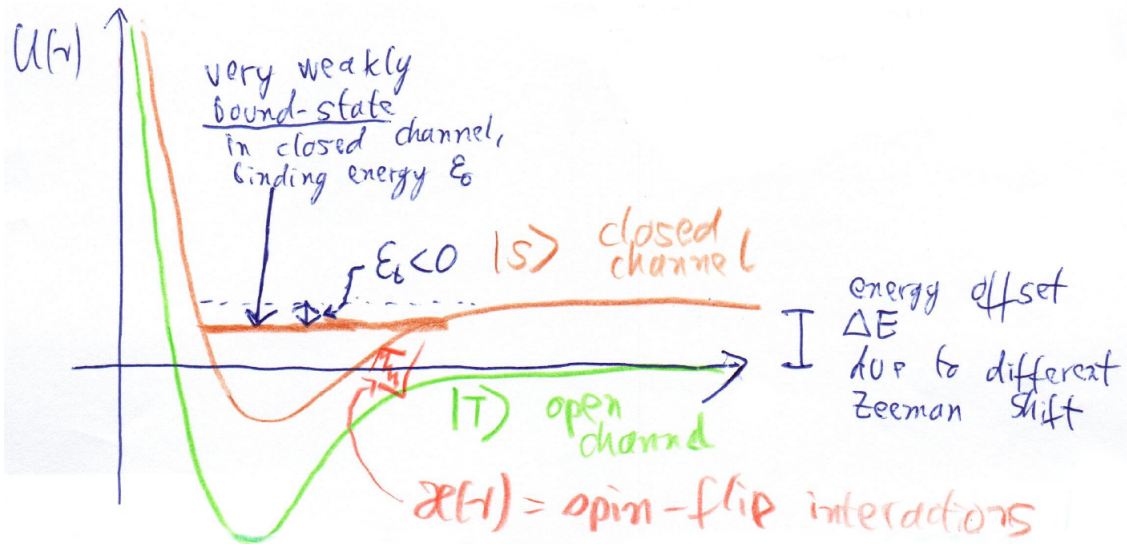 U(r)
very weakly
bound-state
in closed channel,
binding energy ε_b
ε_b<0
|S> closed
channel
energy offset
ΔE
due to different
Zeeman shift
|T> open
channel
æ(r) = spin-flip interactions